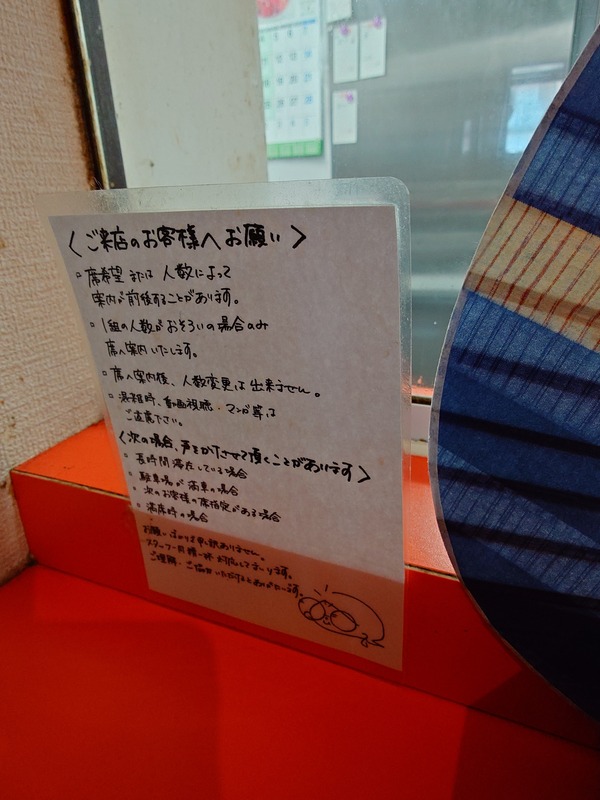 〈ご来店のお客様へお願い〉
▫席希望または人数によって
案内が前後することがあります。
▫1組の人数がおそろいの場合のみ
席へ案内いたします。
▫席へ案内後、人数変更は出来ません。
▫混雑時、動画視聴・マンガ等は
ご遠慮下さい。
〈次の場合、声をかけさせて頂くことがあります〉
▫長時間滞在している場合
▫駐車場が満車の場合
▫次のお客様の席指定がある場合
▫満席時の場合
お願いばかりで申し訳ありません。
スタッフ一同精一杯対応してまいります。
ご理解・ご協力いただけるとありがたいです。